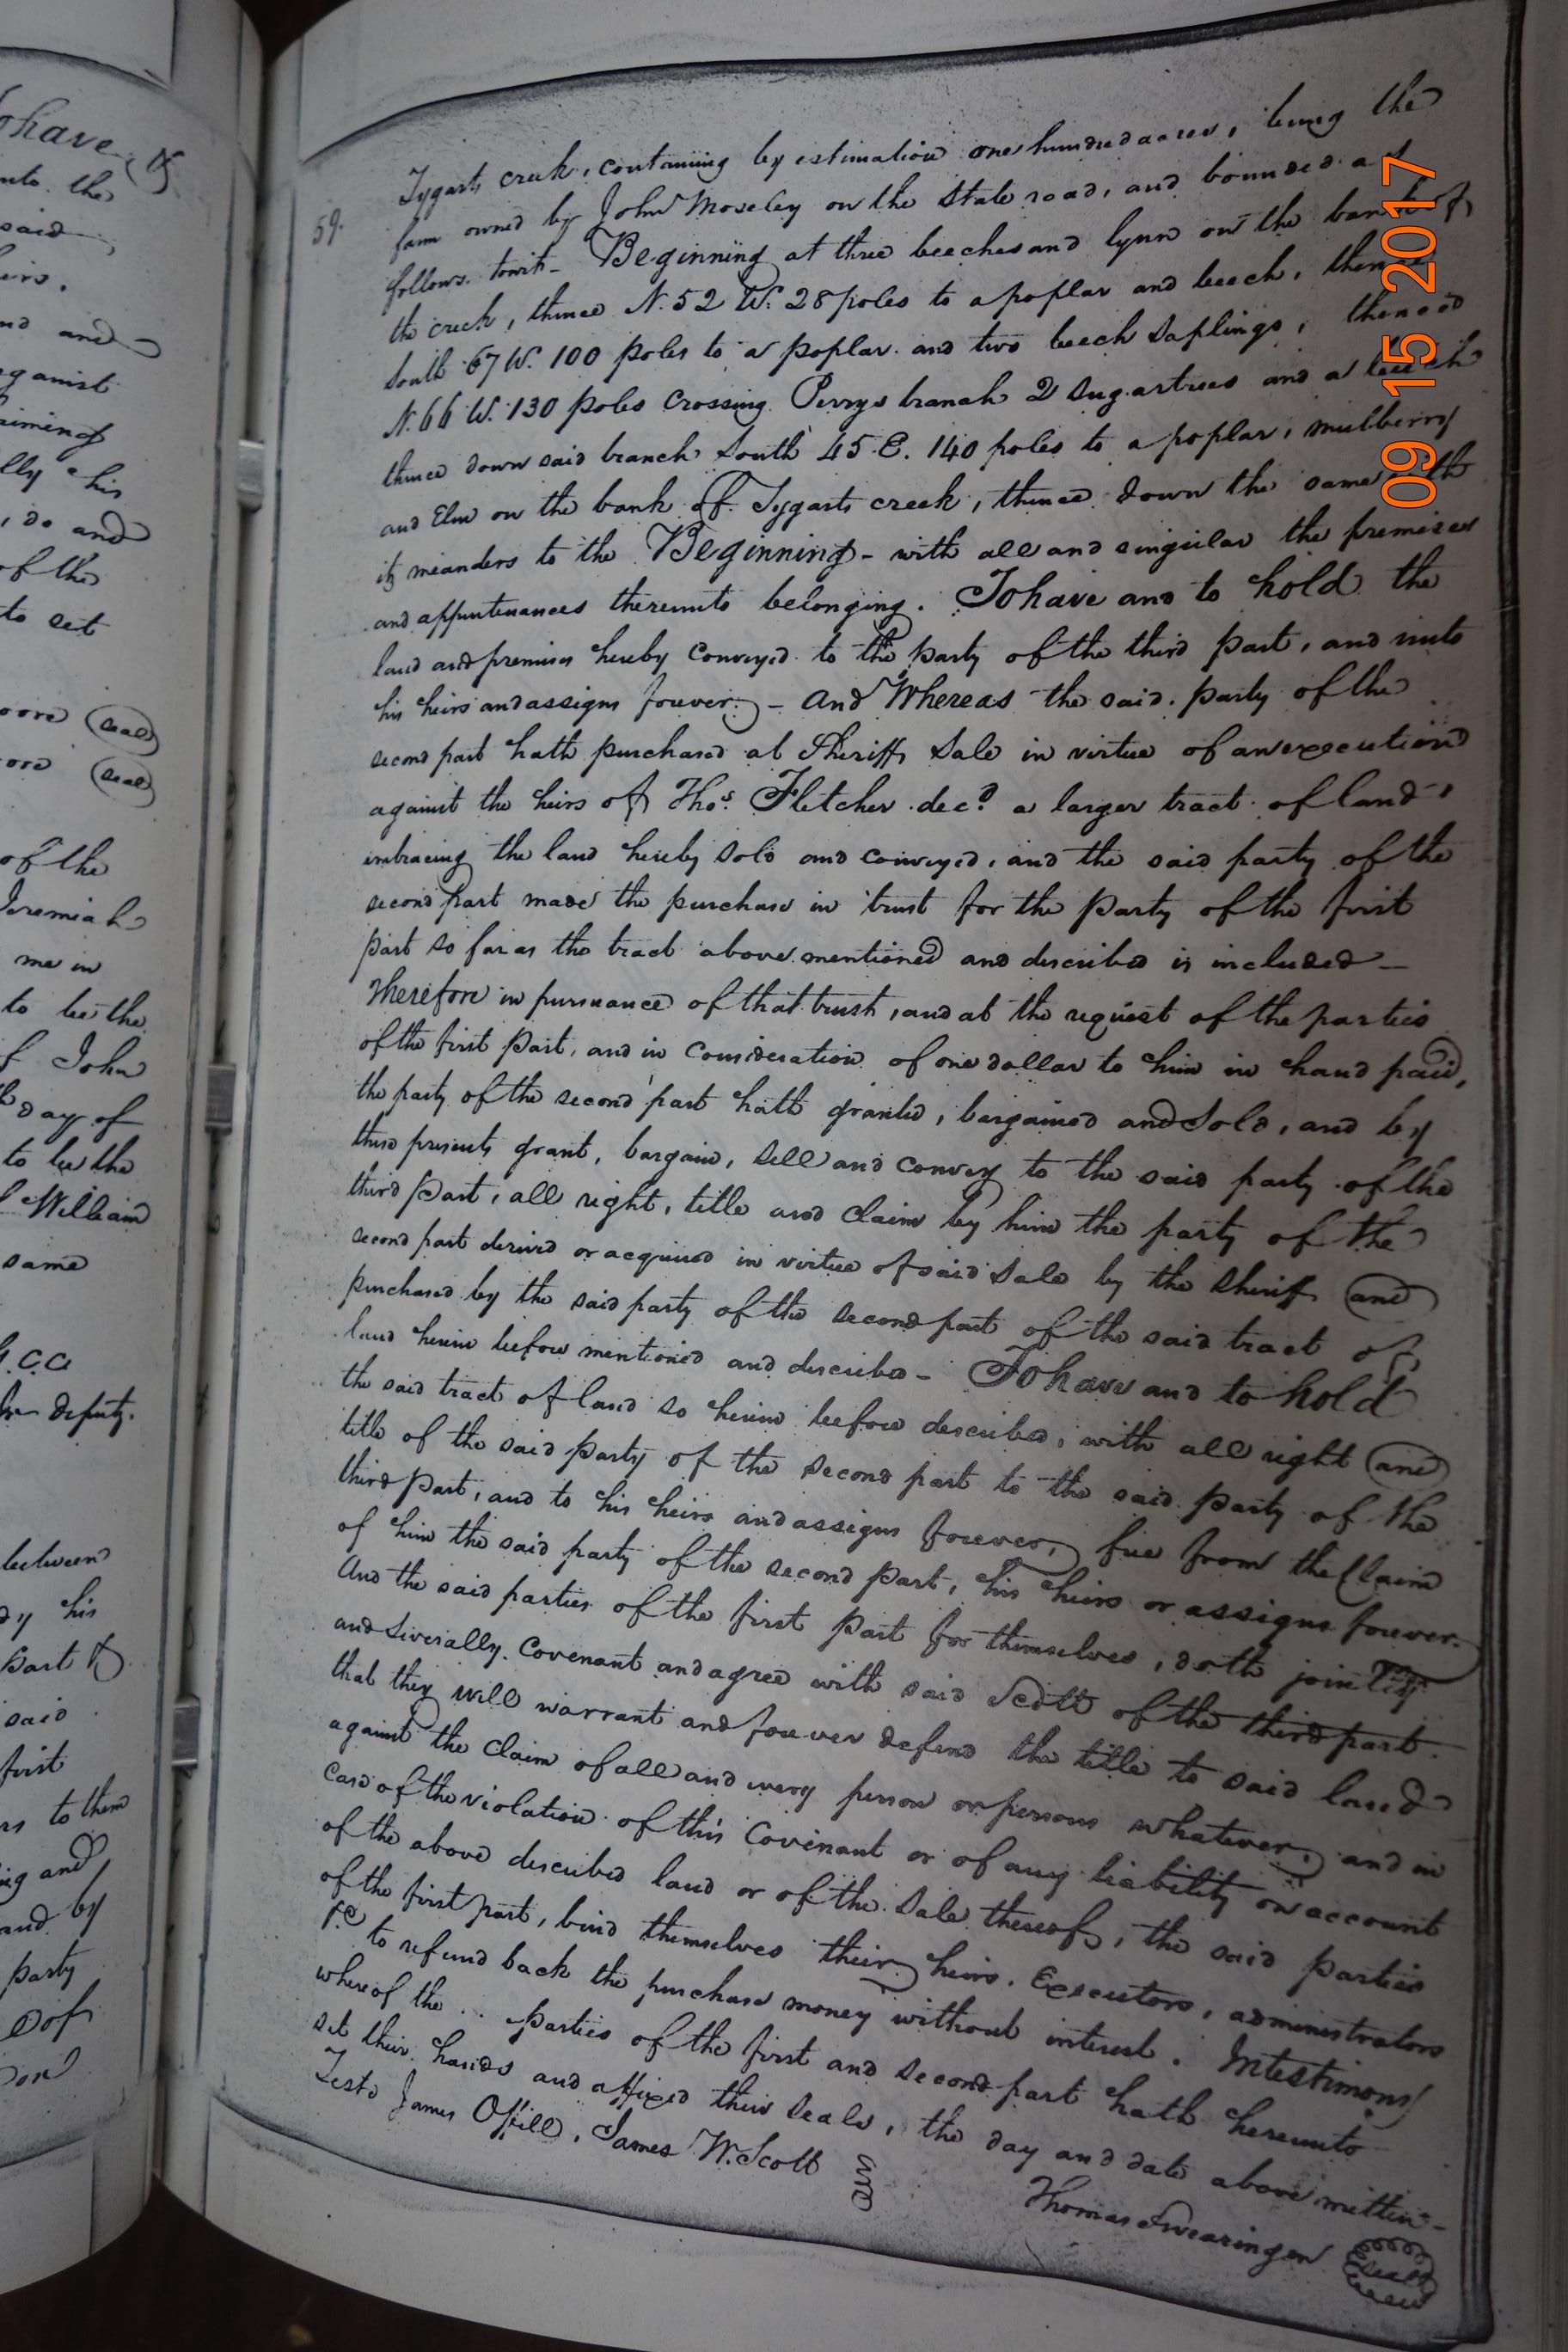 ohave, &
unto the
said
eirs.
and and
against
ly his
, do and
of the
to set
oore seal
ore seal
of the
Jeremiah
me in
to be the
f John
day of
to be the
William
same
G.C.C
deputy.
between
dy his
part &
said
first
rs to them
ing and
and by
party
59.
Tygarts creek, containing by estimation one hundred acres, being the
farm owned by John Moseley on the State road, and bounded as
follows. towit- Beginning at three beeches and lynn on the bank of
the creek, thence N. 52 W. 28 poles to a poplar and beech, thence
South 67 W. 100 poles to a poplar and two beech Saplings, thence
N. 66 W. 130 poles Crossing Perrys branch 2 Sugartrees and a beech
thence down said branch South 45 E. 140 poles to a poplar, mulberry
and Elm on the bank of Tygarts creek, thence down the same with
its meanders to the Beginning - with all and singular the premises
and appurtenances thereunto belonging. To have and to hold the
land and premises hereby Conveyed to the party of the third part, and unto
his heirs and assigns forever. - And Whereas the said party of the
second part hath purchased at Sheriffs Sale in virtue of an execution
against the heirs of Thos. Fletcher decd. a larger tract of land,
imbracing the land hereby sold and conveyed, and the said party of the
second part made the purchase in trust for the party of the first
part so far as the tract above mentioned and described is included -
Therefore in pursuance of that trust, and at the request of the parties
of the first Part, and in Consideration of one dollar to him in hand paid,
the party of the second part hath granted, bargained and Sold, and by
these presents grant, bargain, Sell and convey to the said party of the
third Part, all right, title and claim by him the party of the
second part derived or acquired in virtue of said Sale by the Sheriff and
purchased by the said party of the second part of the said tract of
land herein before mentioned and described - To have and to hold
the said tract of land so herein before described, with all right and
title of the said Party of the Second part to the said party of the
third Part, and to his heirs and assigns forever, free from the Claim
of him the said party of the second Part, his heirs or assigns forever.
And the said parties of the first Part for themselves, doth jointly
and Severally Covenant and agree with said Scott of the third part
that they will warrant and forever defend the title to said land
against the Claim of all and every person or persons whatever, and in
case of the violation of this Covenant or of any liability on account
of the above described land or of the Sale thereof, the said Parties
of the first part, bind themselves their heirs, Executors, administrators
&c to refund back the purchase money without interest. Intestimony
whereof the parties of the first and second part hath hereunto
set their hands and affixed their Seals, the day and date above written-
Teste James Offill, James W. Scott
Thomas Swearingen Seal
09 15 2017